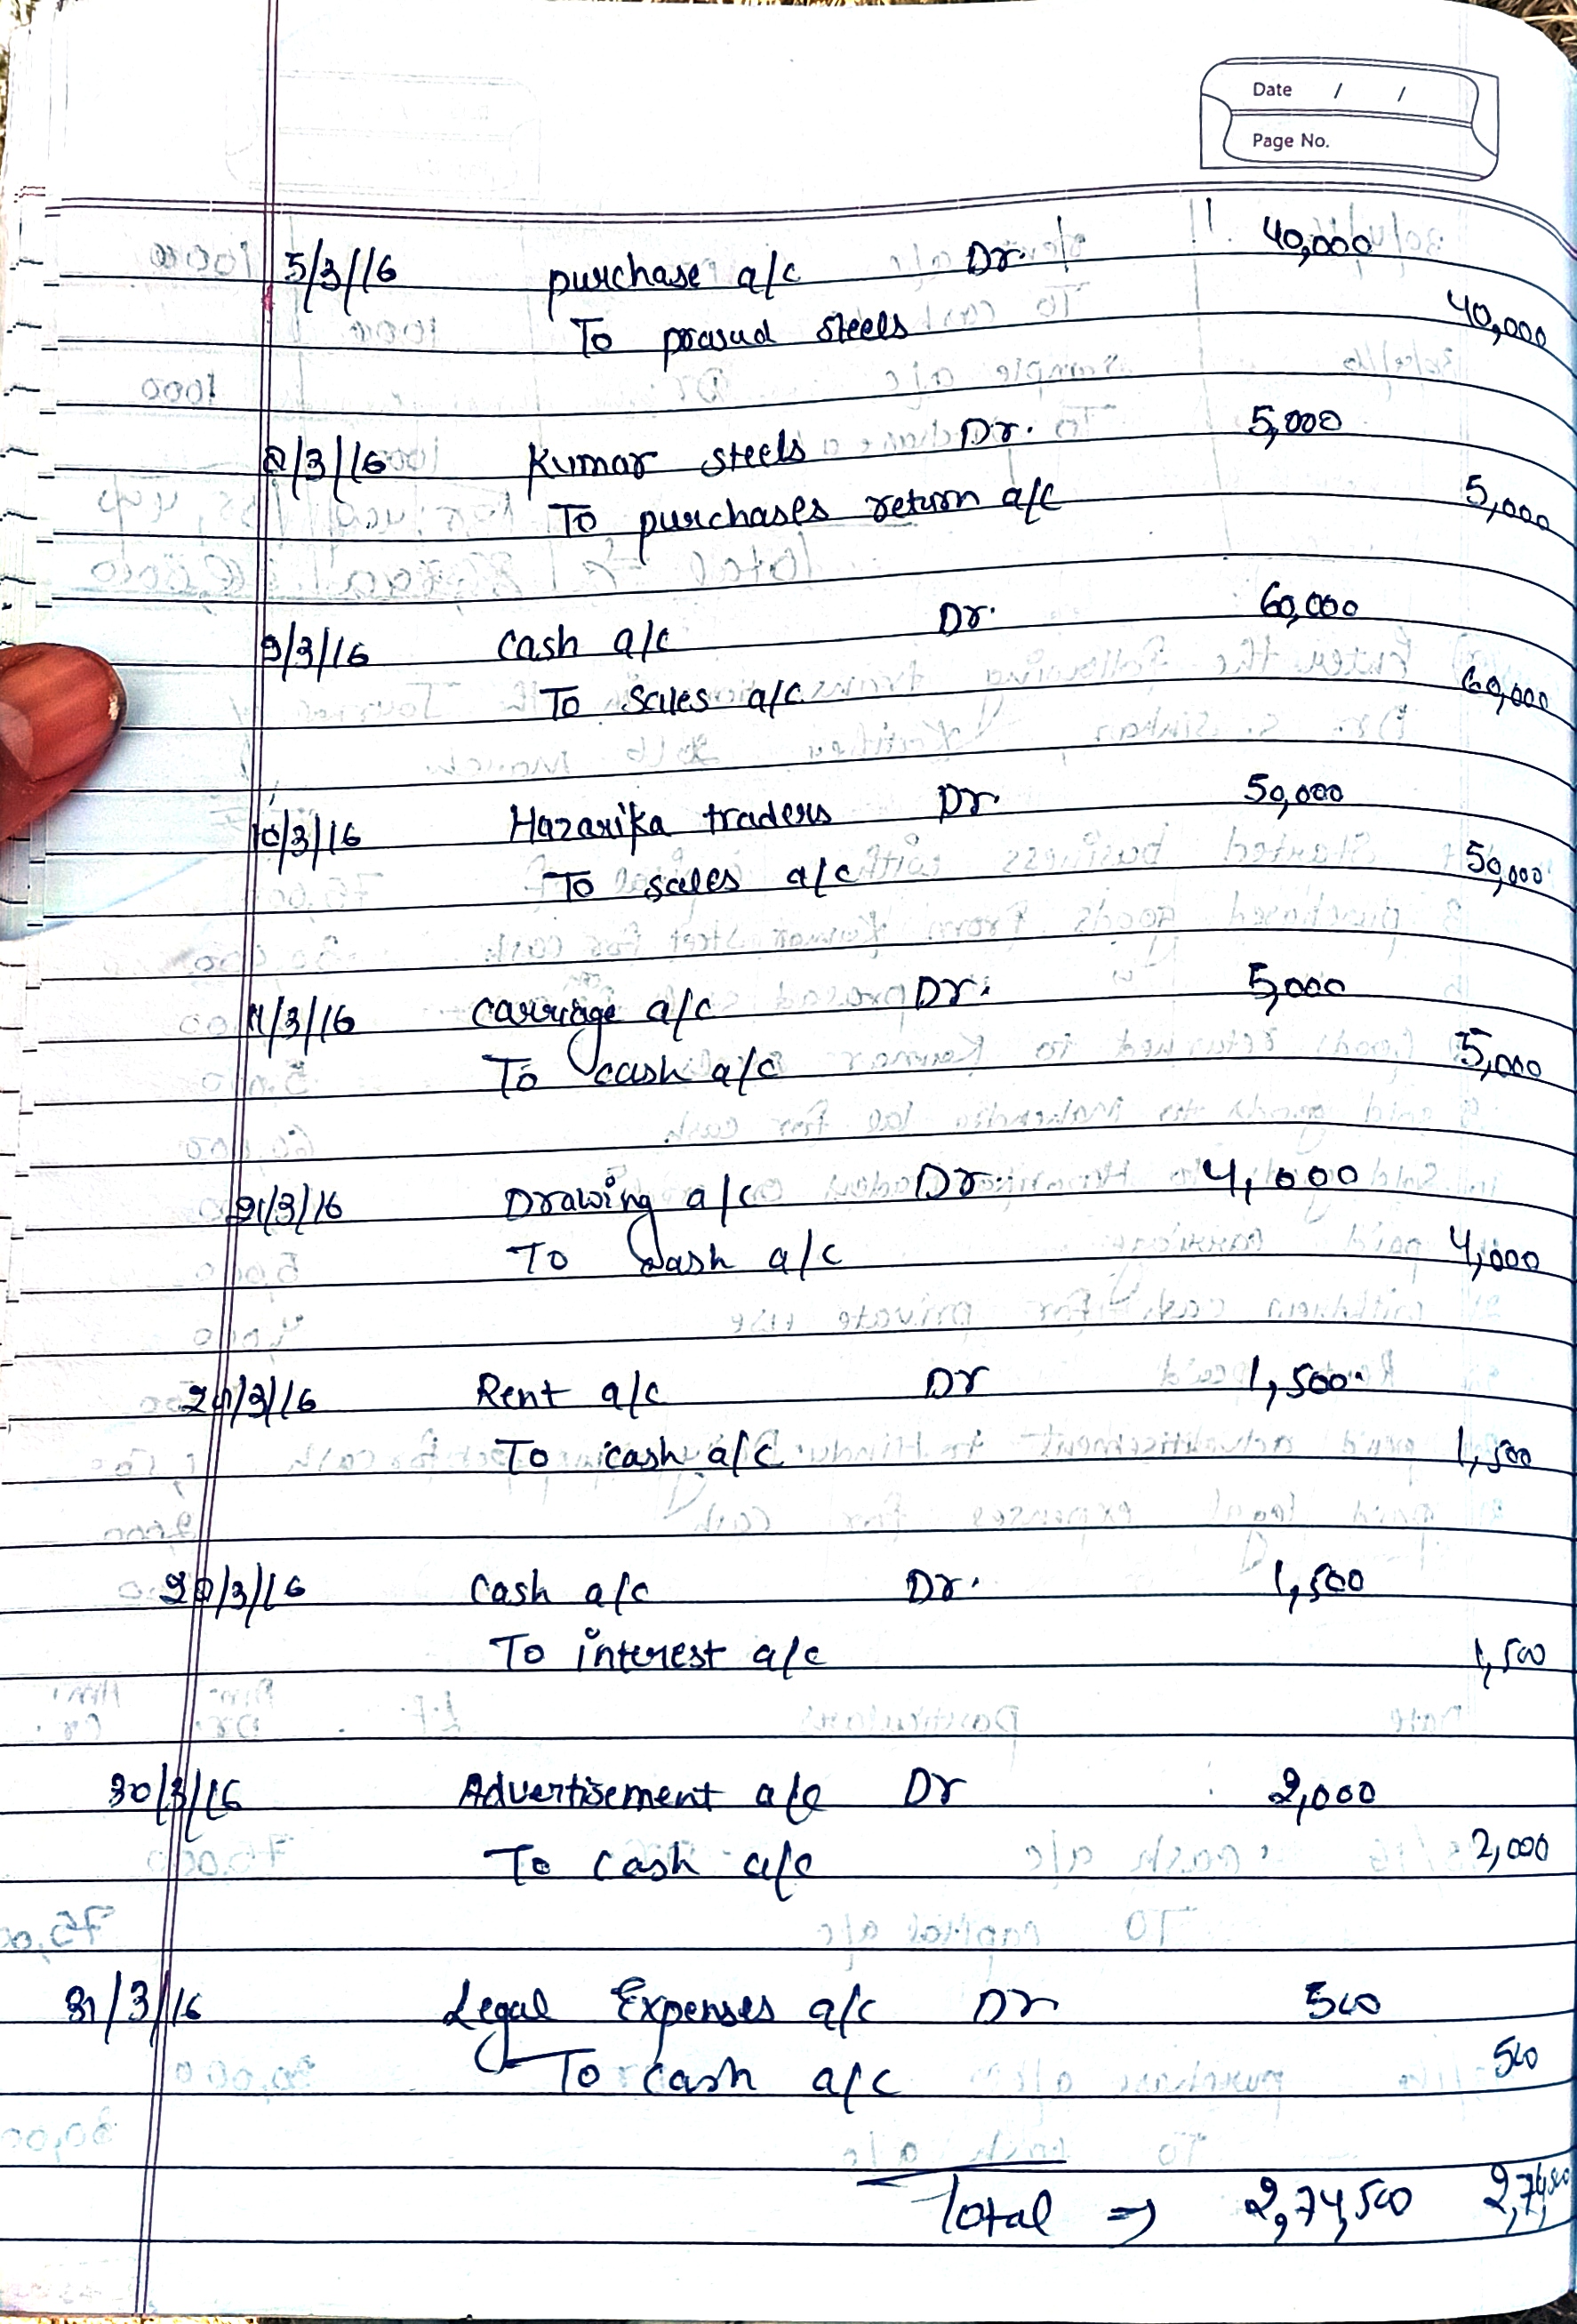 Date / /
Page No.
5/3/16 purchase a/c Dr. 40,000
To prasad steels 40,000
8/3/16 Kumar steels Dr. 5,000
To purchases return a/c 5,000
9/3/16 cash a/c Dr. 60,000
To sales a/c 60,000
10/3/16 Hazarika traders Dr 50,000
To sales a/c 50,000
11/3/16 carriage a/c Dr. 5,000
To cash a/c 5,000
21/3/16 Drawing a/c Dr. 4,000
To cash a/c 4,000
Rent a/c Dr 1,500
To cash a/c 1,500
Cash a/c Dr. 1,500
To interest a/c 1,500
30/3/16 Advertisement a/c Dr 2,000
To cash a/c 2,000
31/3/16 Legal Expenses a/c Dr 500
To cash a/c 500
Total ⇒ 2,74,500 2,74,500